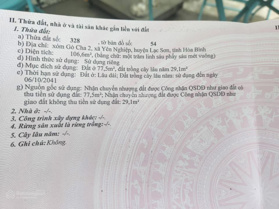 II. Thửa đất, nhà ở và tài sản khác gắn liền với đất
1. Thửa đất:
a) Thửa đất số: 328 , tờ bản đồ số: 54
b) Địa chỉ: xóm Gò Cha 2, xã Yên Nghiệp, huyện Lạc Sơn, tỉnh Hòa Bình
c) Diện tích: 106,6m², (bằng chữ: một trăm linh sáu phẩy sáu mét vuông)
d) Hình thức sử dụng: Sử dụng riêng
đ) Mục đích sử dụng: Đất ở 77,5m², đất trồng cây lâu năm 29,1m²
e) Thời hạn sử dụng: Đất ở: Lâu dài; Đất trồng cây lâu năm: sử dụng đến ngày
06/10/2041
g) Nguồn gốc sử dụng: Nhận chuyển nhượng đất được Công nhận QSDĐ như giao đất có
thu tiền sử dụng đất: 77,5m²; Nhận chuyển nhượng đất được Công nhận QSDĐ như
giao đất không thu tiền sử dụng đất: 29,1m²
2. Nhà ở: -/-.
3. Công trình xây dựng khác: -/-.
4. Rừng sản xuất là rừng trồng: -/-.
5. Cây lâu năm: -/-.
6. Ghi chú: Không.